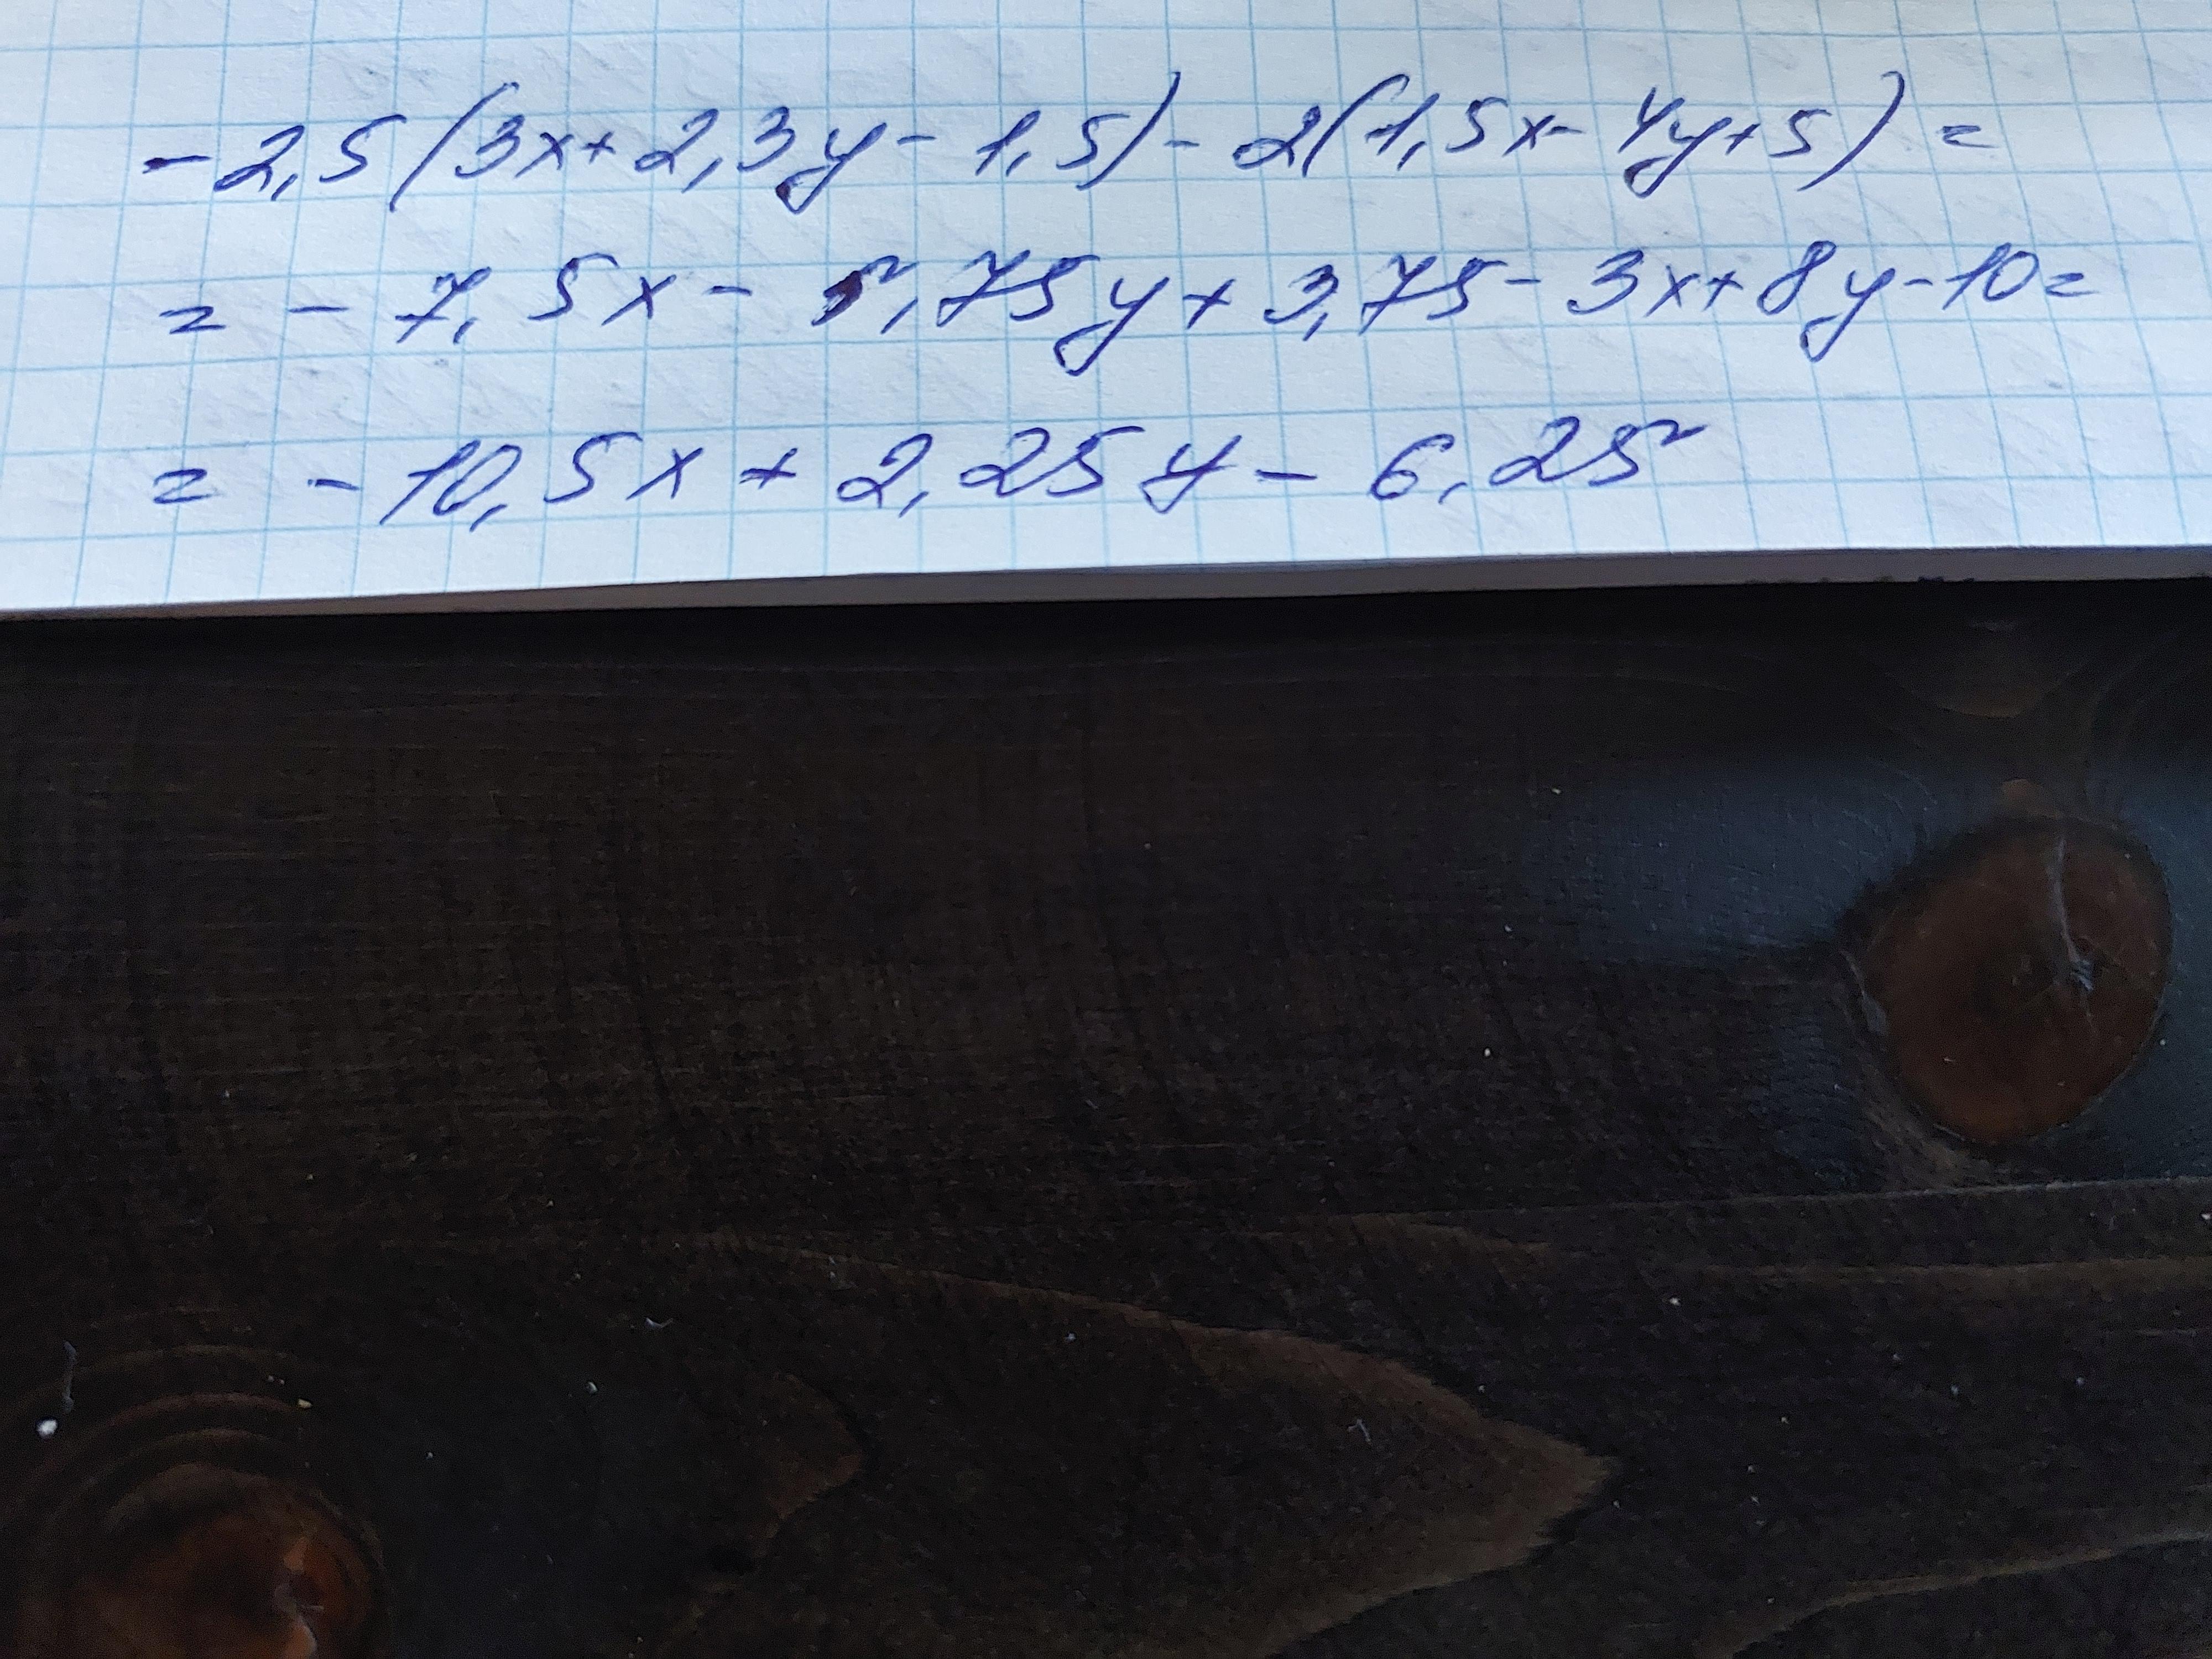 -2,5(3x+2,3y-1,5)-2(1,5x-4y+5)=
=-7,5x-5,75y+3,75-3x+8y-10=
=-10,5x+2,25y-6,25